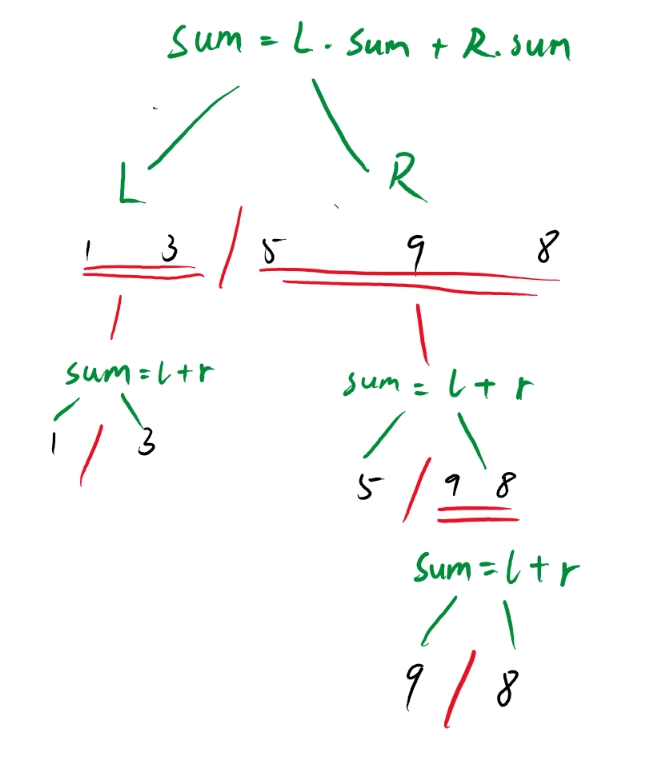 sum = L. sum + R. sum
L R
1 3 / 5 9 8
sum = l + r
sum = l + r
1 / 3
5 / 9 8
sum = l + r
9 / 8